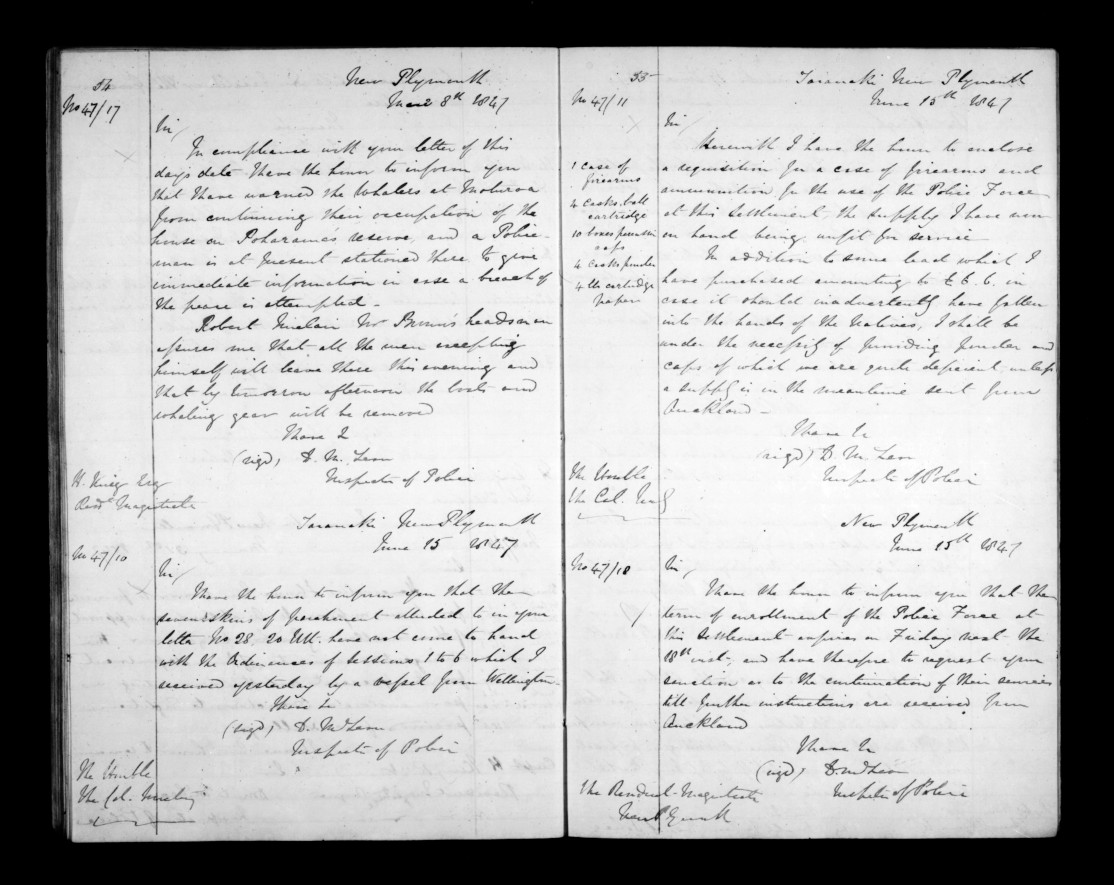 54
New Plymouth
No 47/17
June 8th 1847
Sir/
In compliance with your letter of this
day's date I have the honor to inform you
that I have warned the Whalers at Moturoa
from continuing their occupation of the
house on Poharama's reserve, and a Police-
man is at present stationed there to give
immediate information in case a breach of
the peace is attempted.
Robert Sinclair Mr Brown's headsman
assures me that all the men excepting
himself will leave there this evening and
that by tomorrow afternoon the boats and
whaling gear will be removed
I have &c
(sigd) D. McLean
Inspector of Police
H. King Esq
Resdt Magistrate
Taranaki New Plymouth
June 15 1847
No 47/10
Sir/
I have the honor to inform you that the
seven skins of parchment alluded to in your
letter No 28, 20 Ult. have not come to hand
with the Ordinances of Sessions 1 to 6 which I
received yesterday by a vessel from Wellington
I have &c
(sigd) D. McLean
Inspector of Police
The Honble
The Col. Secretary
55
Taranaki New Plymouth
No 47/11
June 15th 1847
Sir/
Herewith I have the honor to enclose
a requisition for a case of firearms and
ammunition for the use of the Police Force
at this Settlement, the supply I have now
on hand being unfit for service
1 case of
firearms
4 casks ball
cartridge
10 boxes percussion
caps
4 casks powder
4 lbs cartridge
papers
In addition to some lead which I
have purchased amounting to £6.6. in
case it should inadvertently have fallen
into the hands of the Natives, I shall be
under the necessity of providing powder and
caps of which we are quite deficient unless
a supply is in the meantime sent from
Auckland
I have &c
(sigd) D. McLean
Inspector of Police
The Honble
the Col. Secy
New Plymouth
June 15th 1847
No 47/18
Sir/
I have the honor to inform you that the
term of enrollment of the Police Force at
this Settlement expires on Friday next the
18th inst, and have therefore to request your
sanction as to the continuation of their services
till further instructions are received from
Auckland
I have &c
(sigd) D. McLean
Inspector of Police
The Resident Magistrate
New Plymouth